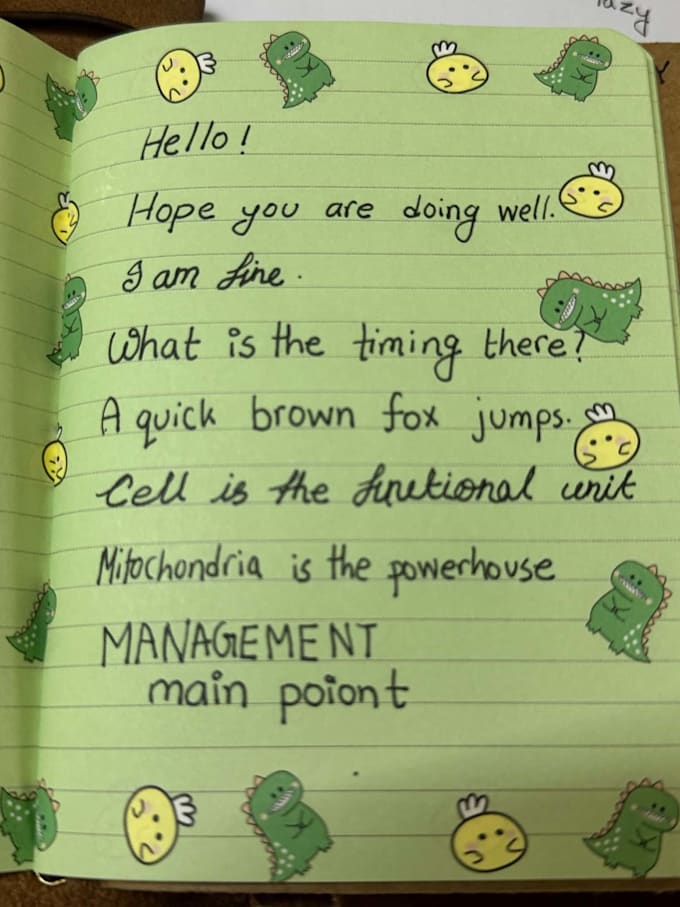 lazy
Hello!
Hope you are doing well.
I am fine.
What is the timing there?
A quick brown fox jumps.
Cell is the functional unit
Mitochondria is the powerhouse
MANAGEMENT
main poiont